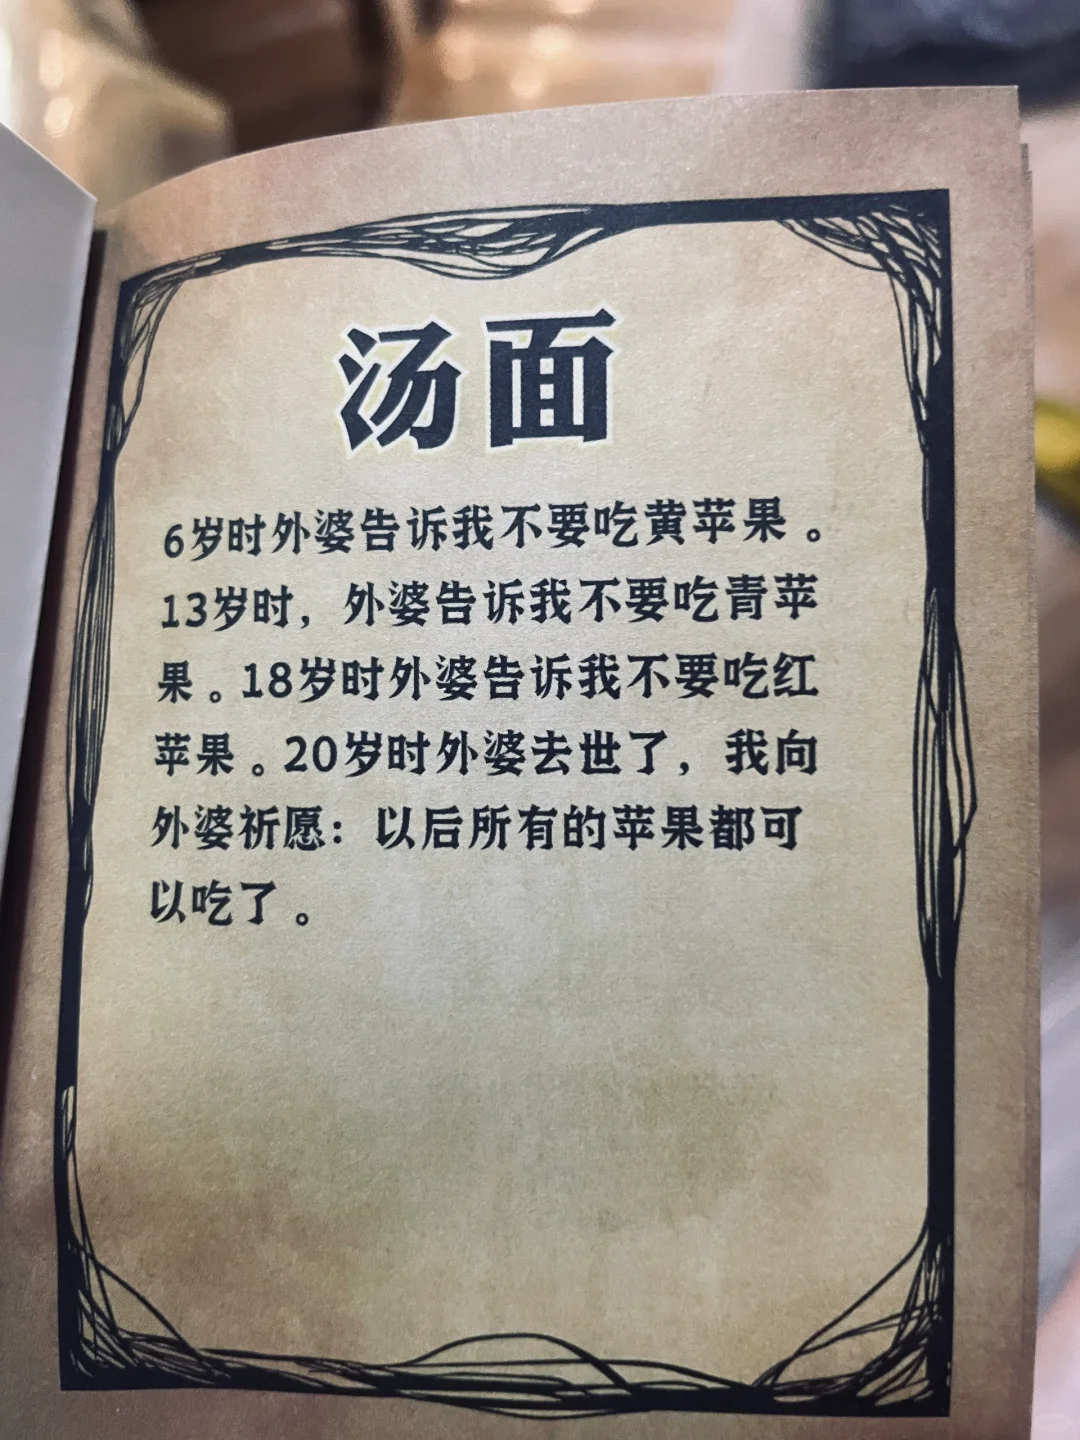 汤面
6岁时外婆告诉我不要吃黄苹果。
13岁时，外婆告诉我不要吃青苹
果。18岁时外婆告诉我不要吃红
苹果。20岁时外婆去世了，我向
外婆祈愿：以后所有的苹果都可
以吃了。